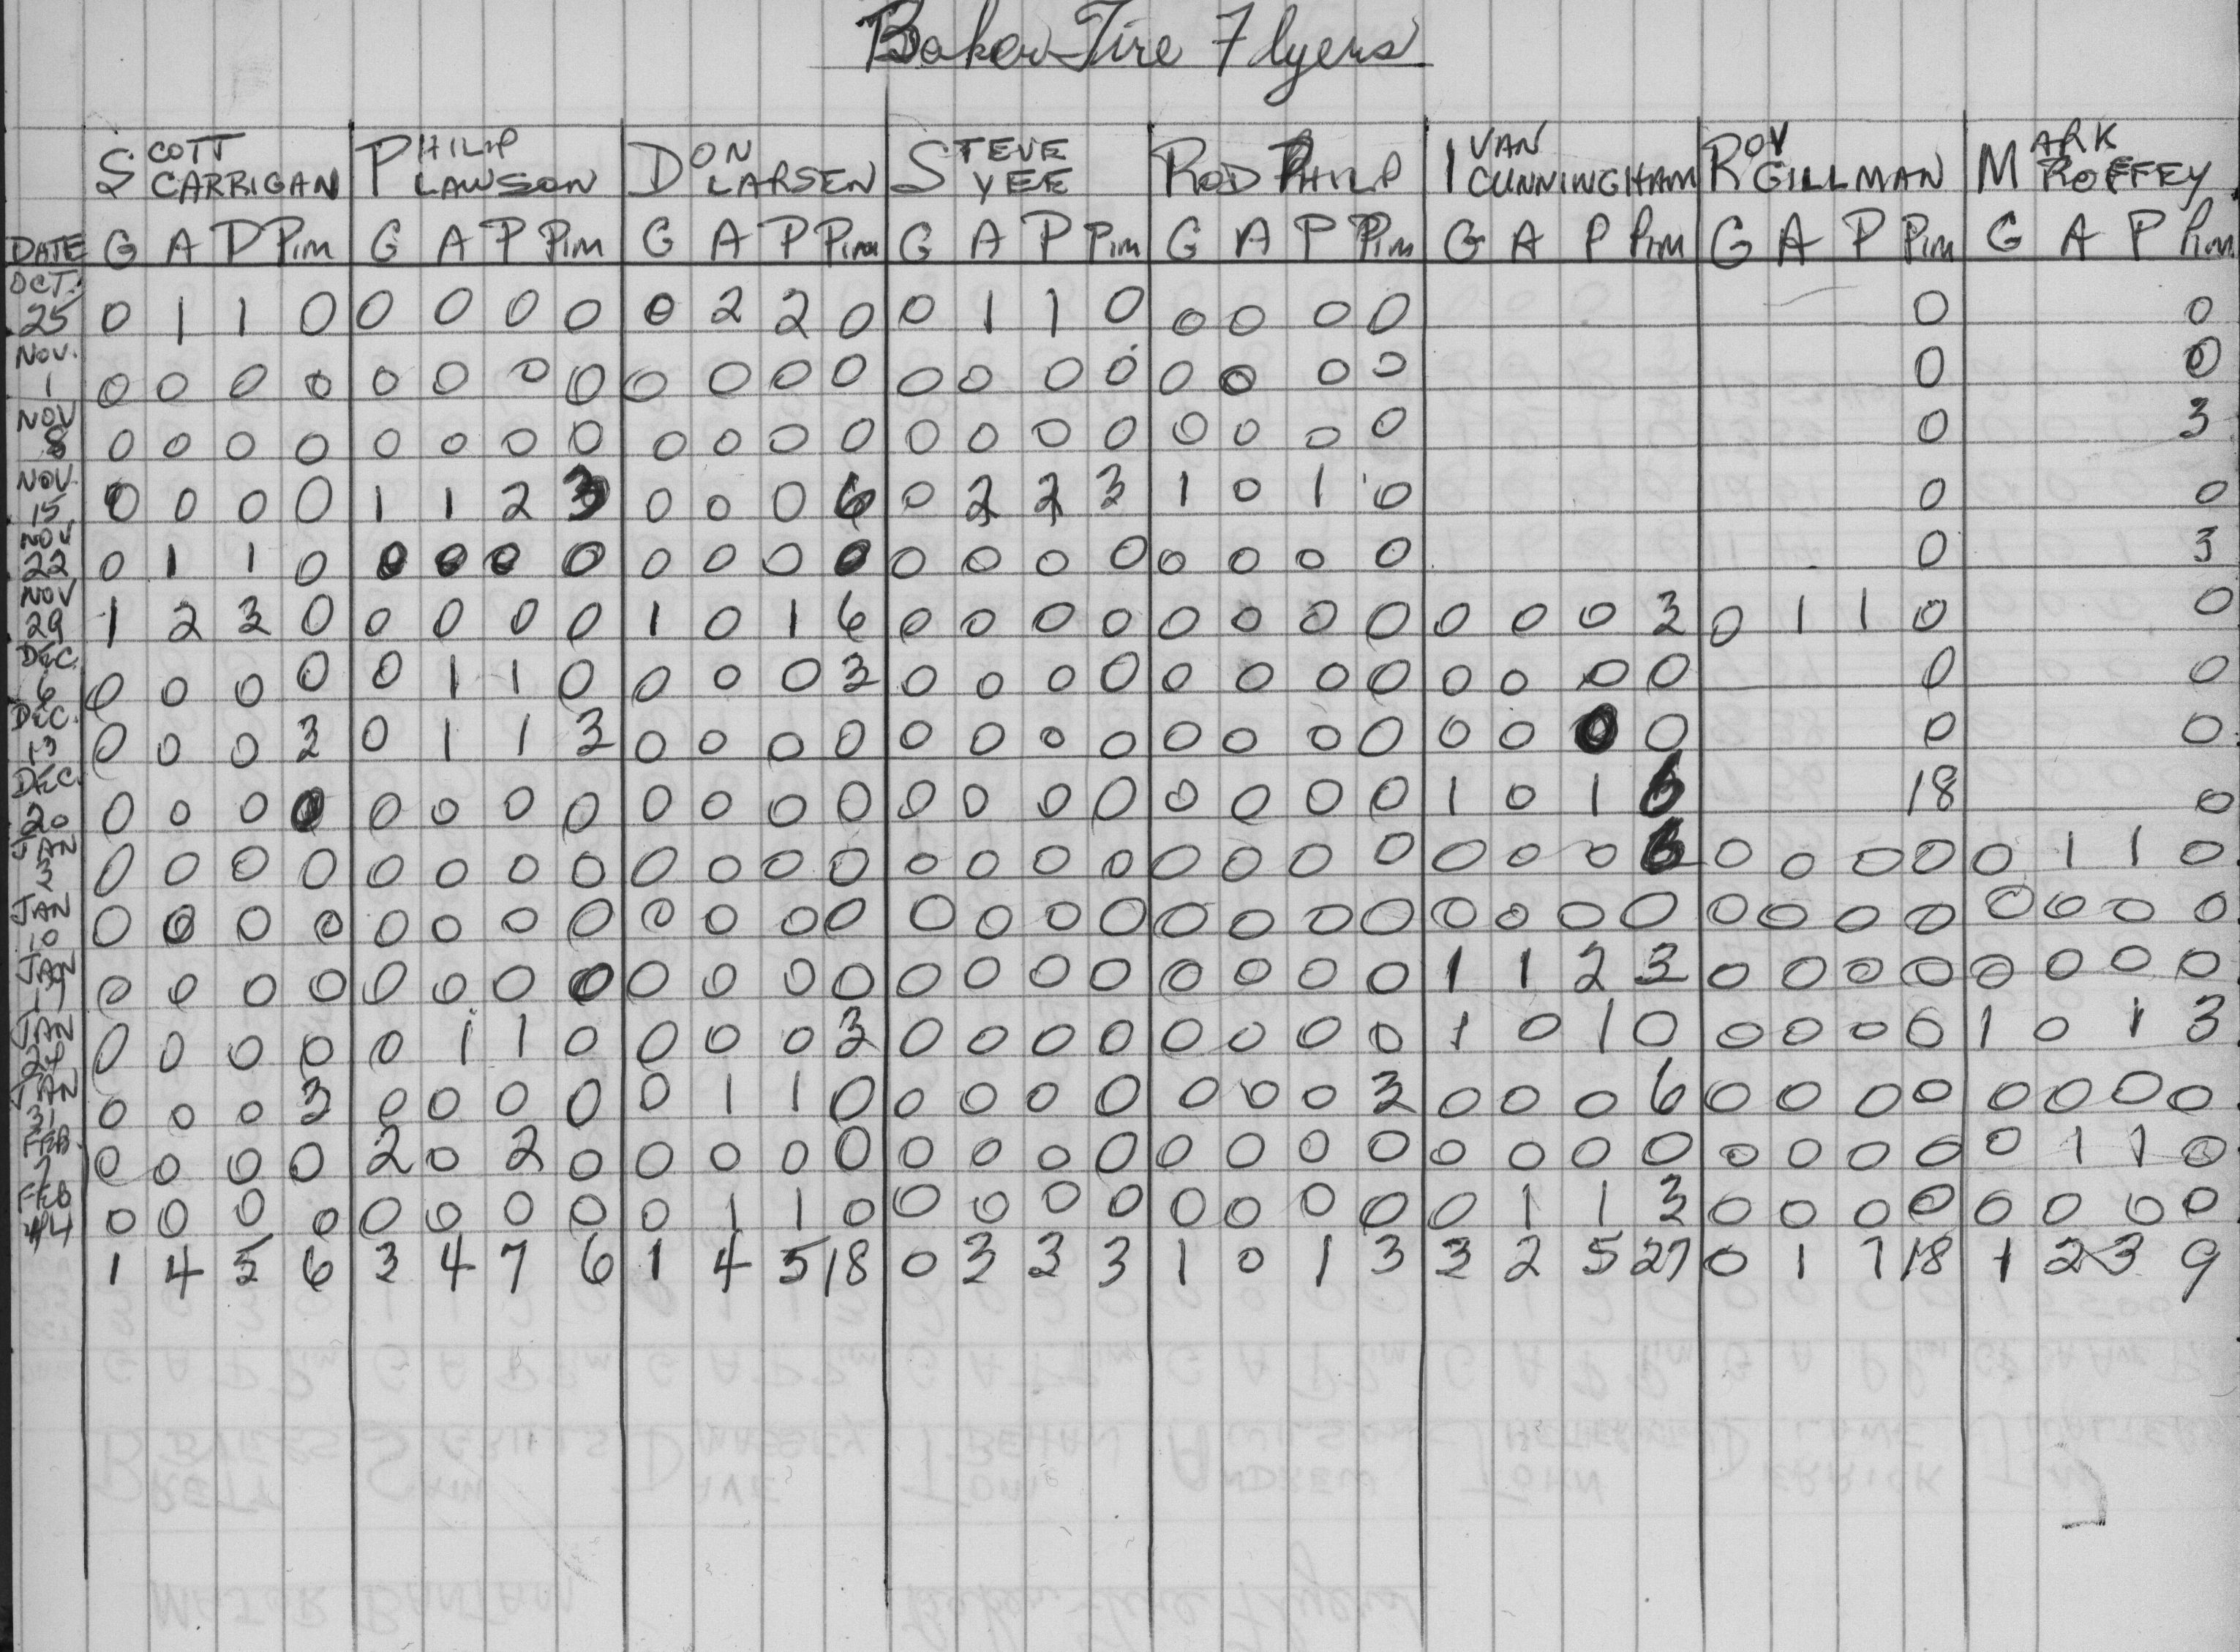 Baker Tire Flyers
SCOTT CARRIGAN PHILIP LAWSON DON LARSEN STEVE YEE ROD PHILP IVAN CUNNINGHAM ROY GILLMAN MARK ROFFEY
DATE G A P Pim G A P Pim G A P Pim G A P Pim G A P Pim G A P Pim G A P Pim G A P Pim
OCT. 25 0 1 1 0 0 0 0 0 0 2 2 0 0 1 1 0 0 0 0 0 0 0
NOV. 1 0 0 0 0 0 0 0 0 0 0 0 0 0 0 0 0 0 0 0 0 0 0
NOV 8 0 0 0 0 0 0 0 0 0 0 0 0 0 0 0 0 0 0 0 0 0 3
NOV. 15 0 0 0 0 1 1 2 3 0 0 0 6 0 2 2 3 1 0 1 0 0 0
NOV 22 0 1 1 0 0 0 0 0 0 0 0 0 0 0 0 0 0 0 0 0 0 3
NOV 29 1 2 3 0 0 0 0 0 1 0 1 6 0 0 0 0 0 0 0 0 0 0 0 3 0 1 1 0 0
DEC. 6 0 0 0 0 0 1 1 0 0 0 0 3 0 0 0 0 0 0 0 0 0 0 0 0 0 0
DEC. 13 0 0 0 3 0 1 1 3 0 0 0 0 0 0 0 0 0 0 0 0 0 0 0 0 0 0
DEC. 20 0 0 0 0 0 0 0 0 0 0 0 0 0 0 0 0 0 0 0 0 1 0 1 6 18 0
JAN 3 0 0 0 0 0 0 0 0 0 0 0 0 0 0 0 0 0 0 0 0 0 0 0 6 0 0 0 0 0 1 1 0
JAN 10 0 0 0 0 0 0 0 0 0 0 0 0 0 0 0 0 0 0 0 0 0 0 0 0 0 0 0 0 0 0 0 0
JAN 17 0 0 0 0 0 0 0 0 0 0 0 0 0 0 0 0 0 0 0 0 1 1 2 3 0 0 0 0 0 0 0 0
JAN 24 0 0 0 0 0 1 1 0 0 0 0 3 0 0 0 0 0 0 0 0 1 0 1 0 0 0 0 0 1 0 1 3
JAN 31 0 0 0 3 0 0 0 0 0 1 1 0 0 0 0 0 0 0 0 3 0 0 0 6 0 0 0 0 0 0 0 0
FEB. 7 0 0 0 0 2 0 2 0 0 0 0 0 0 0 0 0 0 0 0 0 0 0 0 0 0 0 0 0 0 1 1 0
FEB 14 0 0 0 0 0 0 0 0 0 1 1 0 0 0 0 0 0 0 0 0 0 1 1 3 0 0 0 0 0 0 0 0
1 4 5 6 3 4 7 6 1 4 5 18 0 3 3 3 1 0 1 3 3 2 5 27 0 1 1 18 1 2 3 9